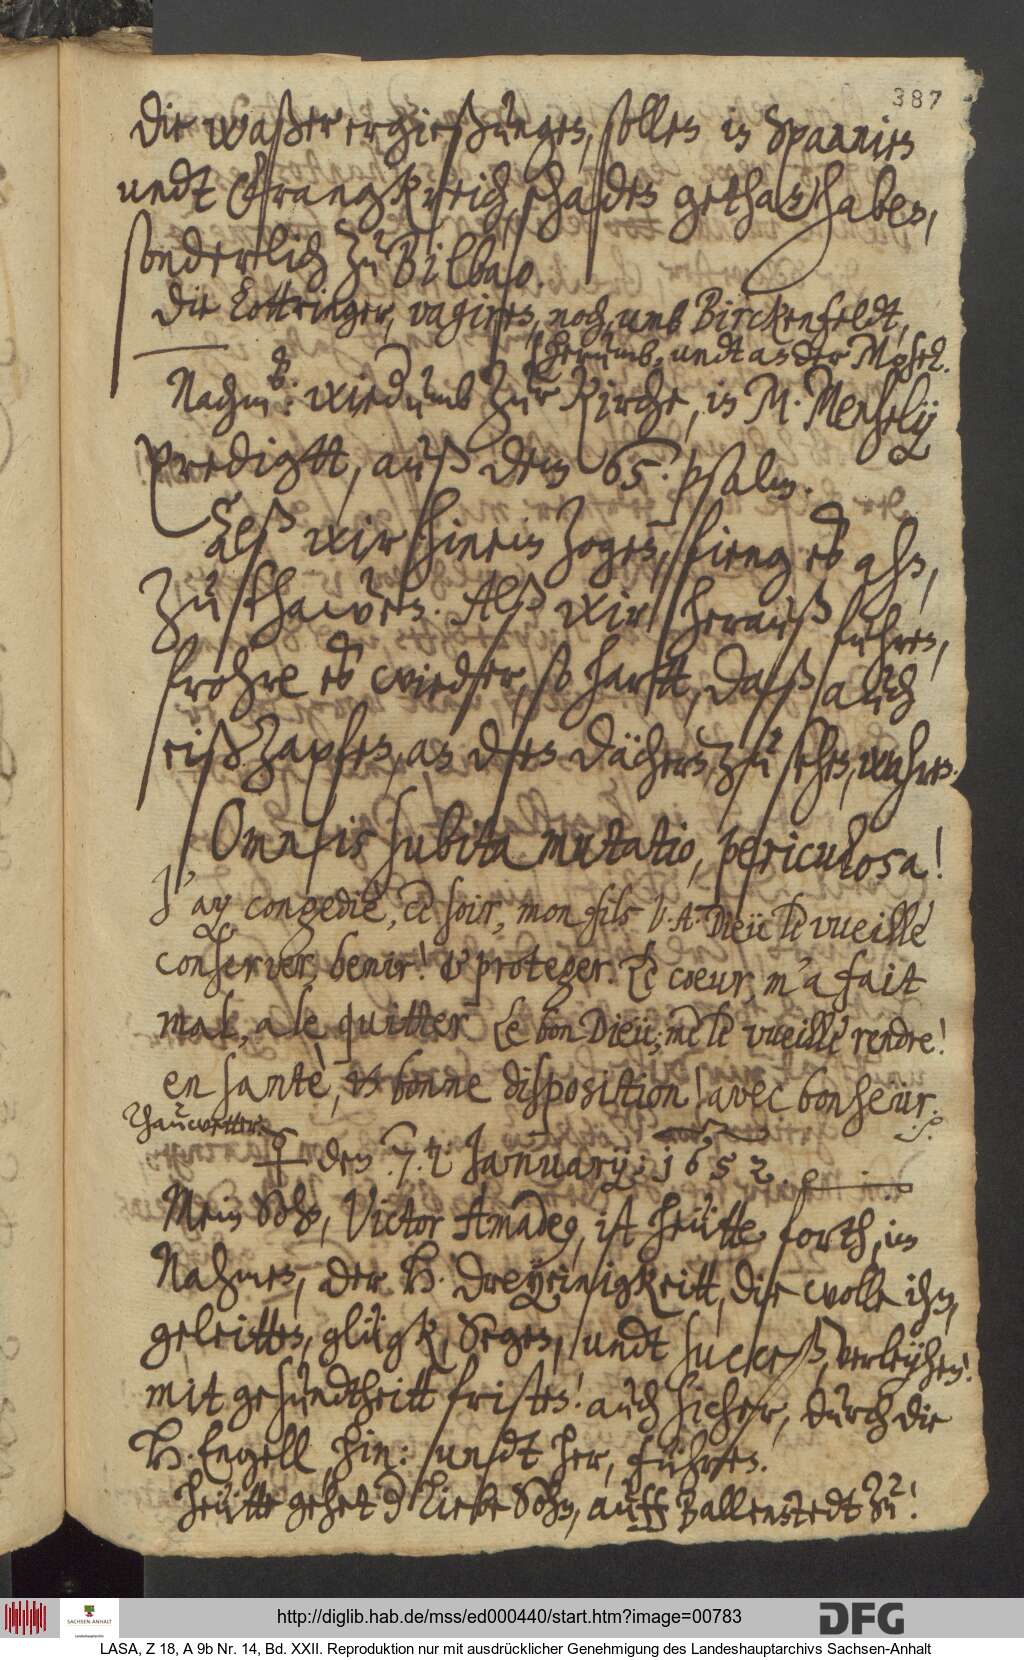 387
Die waßerergießungen, sollen in Spannien
undt Frangkreich, schaden gethan haben,
sonderlich zu Bilbao.
Die Lottringer, vagiren, noch, umb Birckenfeldt,
herumb, undt an der Mosel.
Nachmb: wiedumb zur Kirche, in M. Menzely
Predigtt, auß dem 65. psalm.
Alß wir hinein zogen, fieng es ahn,
zu thawen. Alß wir herauß fuhren,
frohre es wieder, so hartt, daß auch
eißzapfen, an den dächern, zu sehen, wahren.
Omnis subita mutatio, periculosa!
J'ay congediè, ce soir, mon fils V. A. Dieu le vueille
conserver, benir! & proteger. Le coeur, m'a fait
mal, a le quitter Le bon Dieu, me le vueille rendre!
en santè, & bonne disposition! avec bonheur.
Thauwetter.
♀ den 7. Januarij: 1652.
Mein Sohn, Victor Amadeq, ist heütte forth, im
Nahmen, der H. Dreyeinigkeitt, die wolle ihn,
geleitten, glügk, Segen, undt success, verleyhen!
mit gesundtheitt fristen! auch sicher, durch die
H. Engell, hin: undt her, führen.
Heütte gehet d liebe Sohn, auff Ballenstedt zu!
http://diglib.hab.de/mss/ed000440/start.htm?image=00783
SACHSEN-ANHALT
DFG
LASA, Z 18, A 9b Nr. 14, Bd. XXII. Reproduktion nur mit ausdrücklicher Genehmigung des Landeshauptarchivs Sachsen-Anhalt